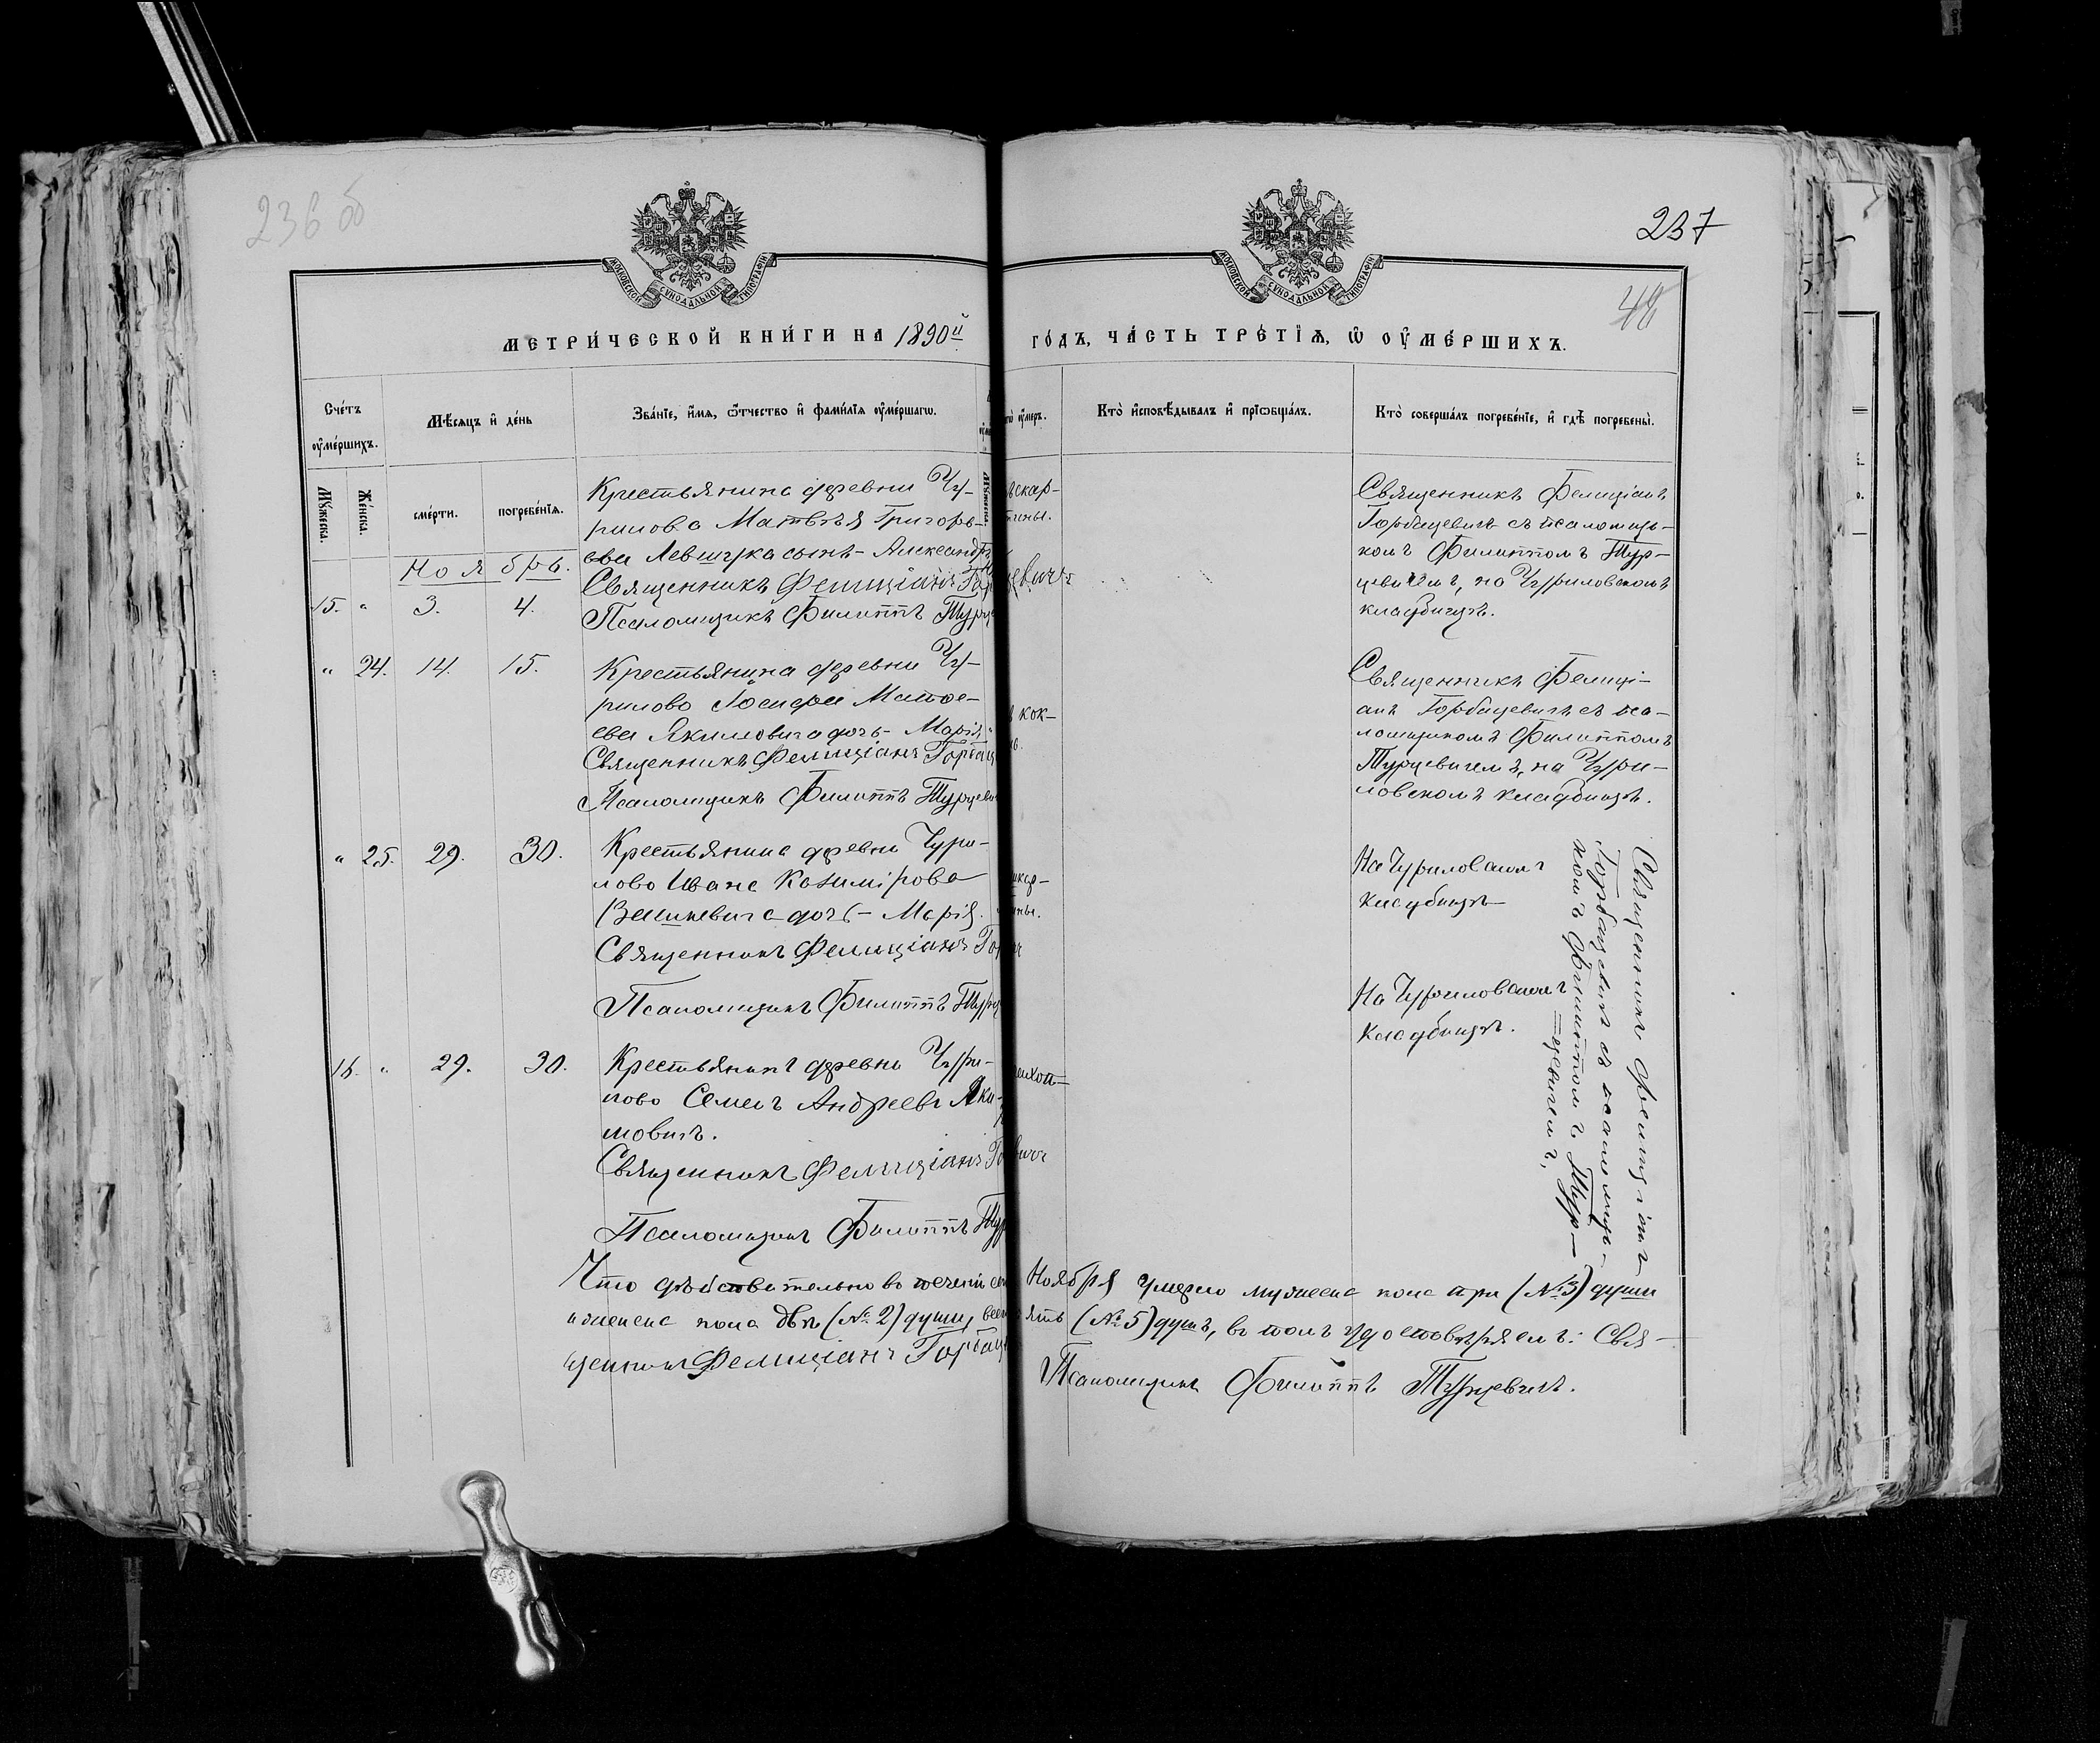 236 об
237
48
МОСКОВСКОЙ СУНОДАЛЬНОЙ ТИПОГРАФІИ
МОСКОВСКОЙ СУНОДАЛЬНОЙ ТИПОГРАФІИ
МЕТРИ́ЧЕСКОЙ КНИ́ГИ НА 1890й
ГО́ДЪ, ЧА́СТЬ ТРЕ́ТІѦ, Ѡ ОУМЕ́РШИХЪ.
Сче́тъ
оуме́ршихъ.
Мѣ́сяцъ и де́нь
Зва́ніе, и́мѧ, ѻ҆́тчество и фами́лїѧ оуме́ршагѡ.
оуме́ръ.
Кто̀ и҆сповѣ́дывалъ и҆ прїѡбща́лъ.
Кто̀ соверша́лъ погребе́нїе, и҆ гдѣ̀ погребены̀.
Мꙋ́жеска.
Же́нска.
сме́рти.
погребе́нїѧ.
Ноябрь.
15. " 3. 4.
Крестьянина деревни Чу-
рилово Матвѣя Григорь-
ева Левшука сынъ - Александръ
Священникъ Фелиціанъ
Псаломщикъ Филиппъ
скар-
тины.
Священникъ Фелиціанъ
Горбацевичъ съ псаломщи-
комъ Филиппомъ Тур-
цевичемъ, на Чуриловскомъ
кладбищѣ.
" 24. 14. 15.
Крестьянина деревни Чу-
рилово Іосифа Матфе-
ева Якимовича дочь - Марія
Священникъ Фелиціанъ
Псаломщикъ Филиппъ
кок-
Священникъ Фелиці-
анъ Горбацевичъ съ пса-
ломщикомъ Филиппомъ
Турцевичемъ, на Чури-
ловскомъ кладбищѣ.
" 25. 29. 30.
Крестьянина деревни Чури-
лово Ивана Казимірова
дочь - Марія.
Священникъ Фелиціанъ
Псаломщикъ Филиппъ
На Чуриловскомъ
кладбищѣ
Священникъ Фелиціанъ
Горбацевичъ съ псаломщи-
комъ Филиппомъ Тур-
цевичемъ,
16. " 29. 30.
Крестьянинъ деревни Чури-
лово Семенъ Андреевъ Яки-
мовичъ.
Священникъ Фелиціанъ
Псаломщикъ Филиппъ
На Чуриловскомъ
кладбищѣ.
Что дѣйствительно въ теченіи Ноября умерло мужеска пола три (№ 3) души
и женска пола двѣ (№ 2) души, (№ 5) душъ, въ томъ удостовѣряемъ: Свя-
щенникъ Фелиціанъ
Псаломщикъ Филиппъ Турцевичъ.